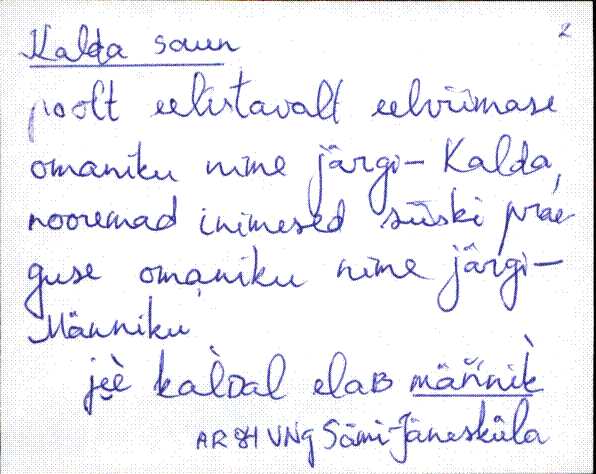 Kalda saun 2
poolt eelistavalt eelviimase
omaniku nime järgi – Kalda,
nooremad inimesed siiski prae-
guse omaniku nime järgi –
Männiku
jèè kàlDal elaB männìk
AR 81 VNg Sämi-Jänesküla